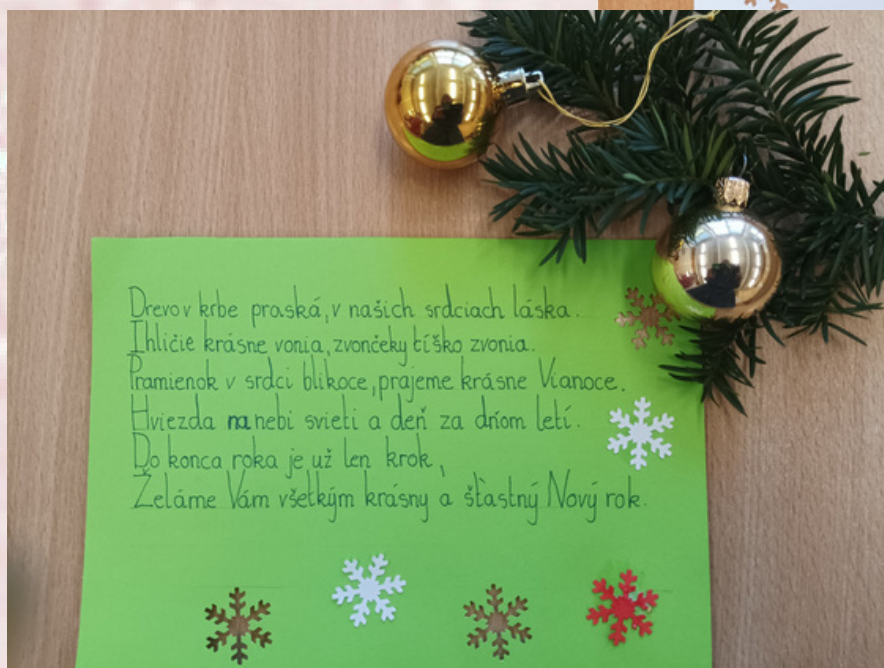 Drevo v krbe praská, v našich srdciach láska.
Ihličie krásne vonia, zvončeky tíško zvonia.
Pramienok v srdci blikoce, prajeme krásne Vianoce.
Hviezda na nebi svieti a deň za dňom letí.
Do konca roka je už len krok,
Želáme Vám všetkým krásny a šťastný Nový rok.